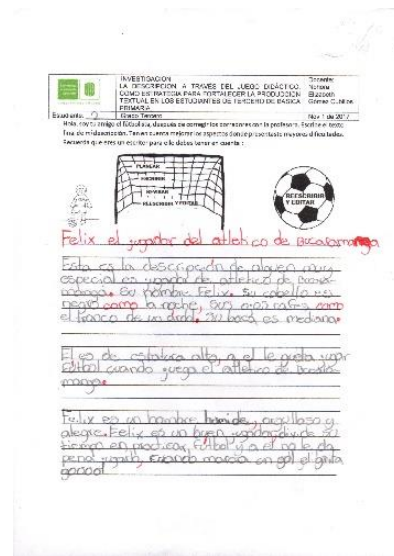 INVESTIGACION
LA DESCRIPCION A TRAVÉS DEL JUEGO DIDÁCTICO,
COMO ESTRATEGIA PARA FORTALECER LA PRODUCCIÓN
TEXTUAL EN LOS ESTUDIANTES DE TERCERO DE BASICA
PRIMARIA
Docente:
Nohora
Elizabeth
Gómez Cubillos
Estudiante: 2
Grado Tercero
Nov 1 de 2017
Hola, soy tu amigo el futbolista, después de corregir los borradores con la profesora. Escribe el texto
final de mi descripción. Ten en cuenta mejorar los aspectos donde presentaste mayores dificultades.
Recuerda que eres un escritor para ello debes tener en cuenta:
PLANEAR
ESCRIBIR
REVISAR
REESCRIBIR Y EDITAR
REESCRIBIR
Y EDITAR
Felix el jugador del atletico de Bucaramanga
Esta es la descripción de alguien muy
especial es jugador de atletico de Bucara-
manga. Su nombre Felix. Su cabello es
negro como la noche, sus ojos cafes como
el tronco de un arbol. Su boca es mediana.
El es de estatura alta, a el le gusta jugar
futbol cuando juega el atletico de Bucara-
manga.
Felix es un hombre humilde, orgulloso y
alegre. Felix es un buen jugador, divide su
tiempo en practicar futbol y a el no le da
pena jugarlo, cuando marca un gol el grita
goooool